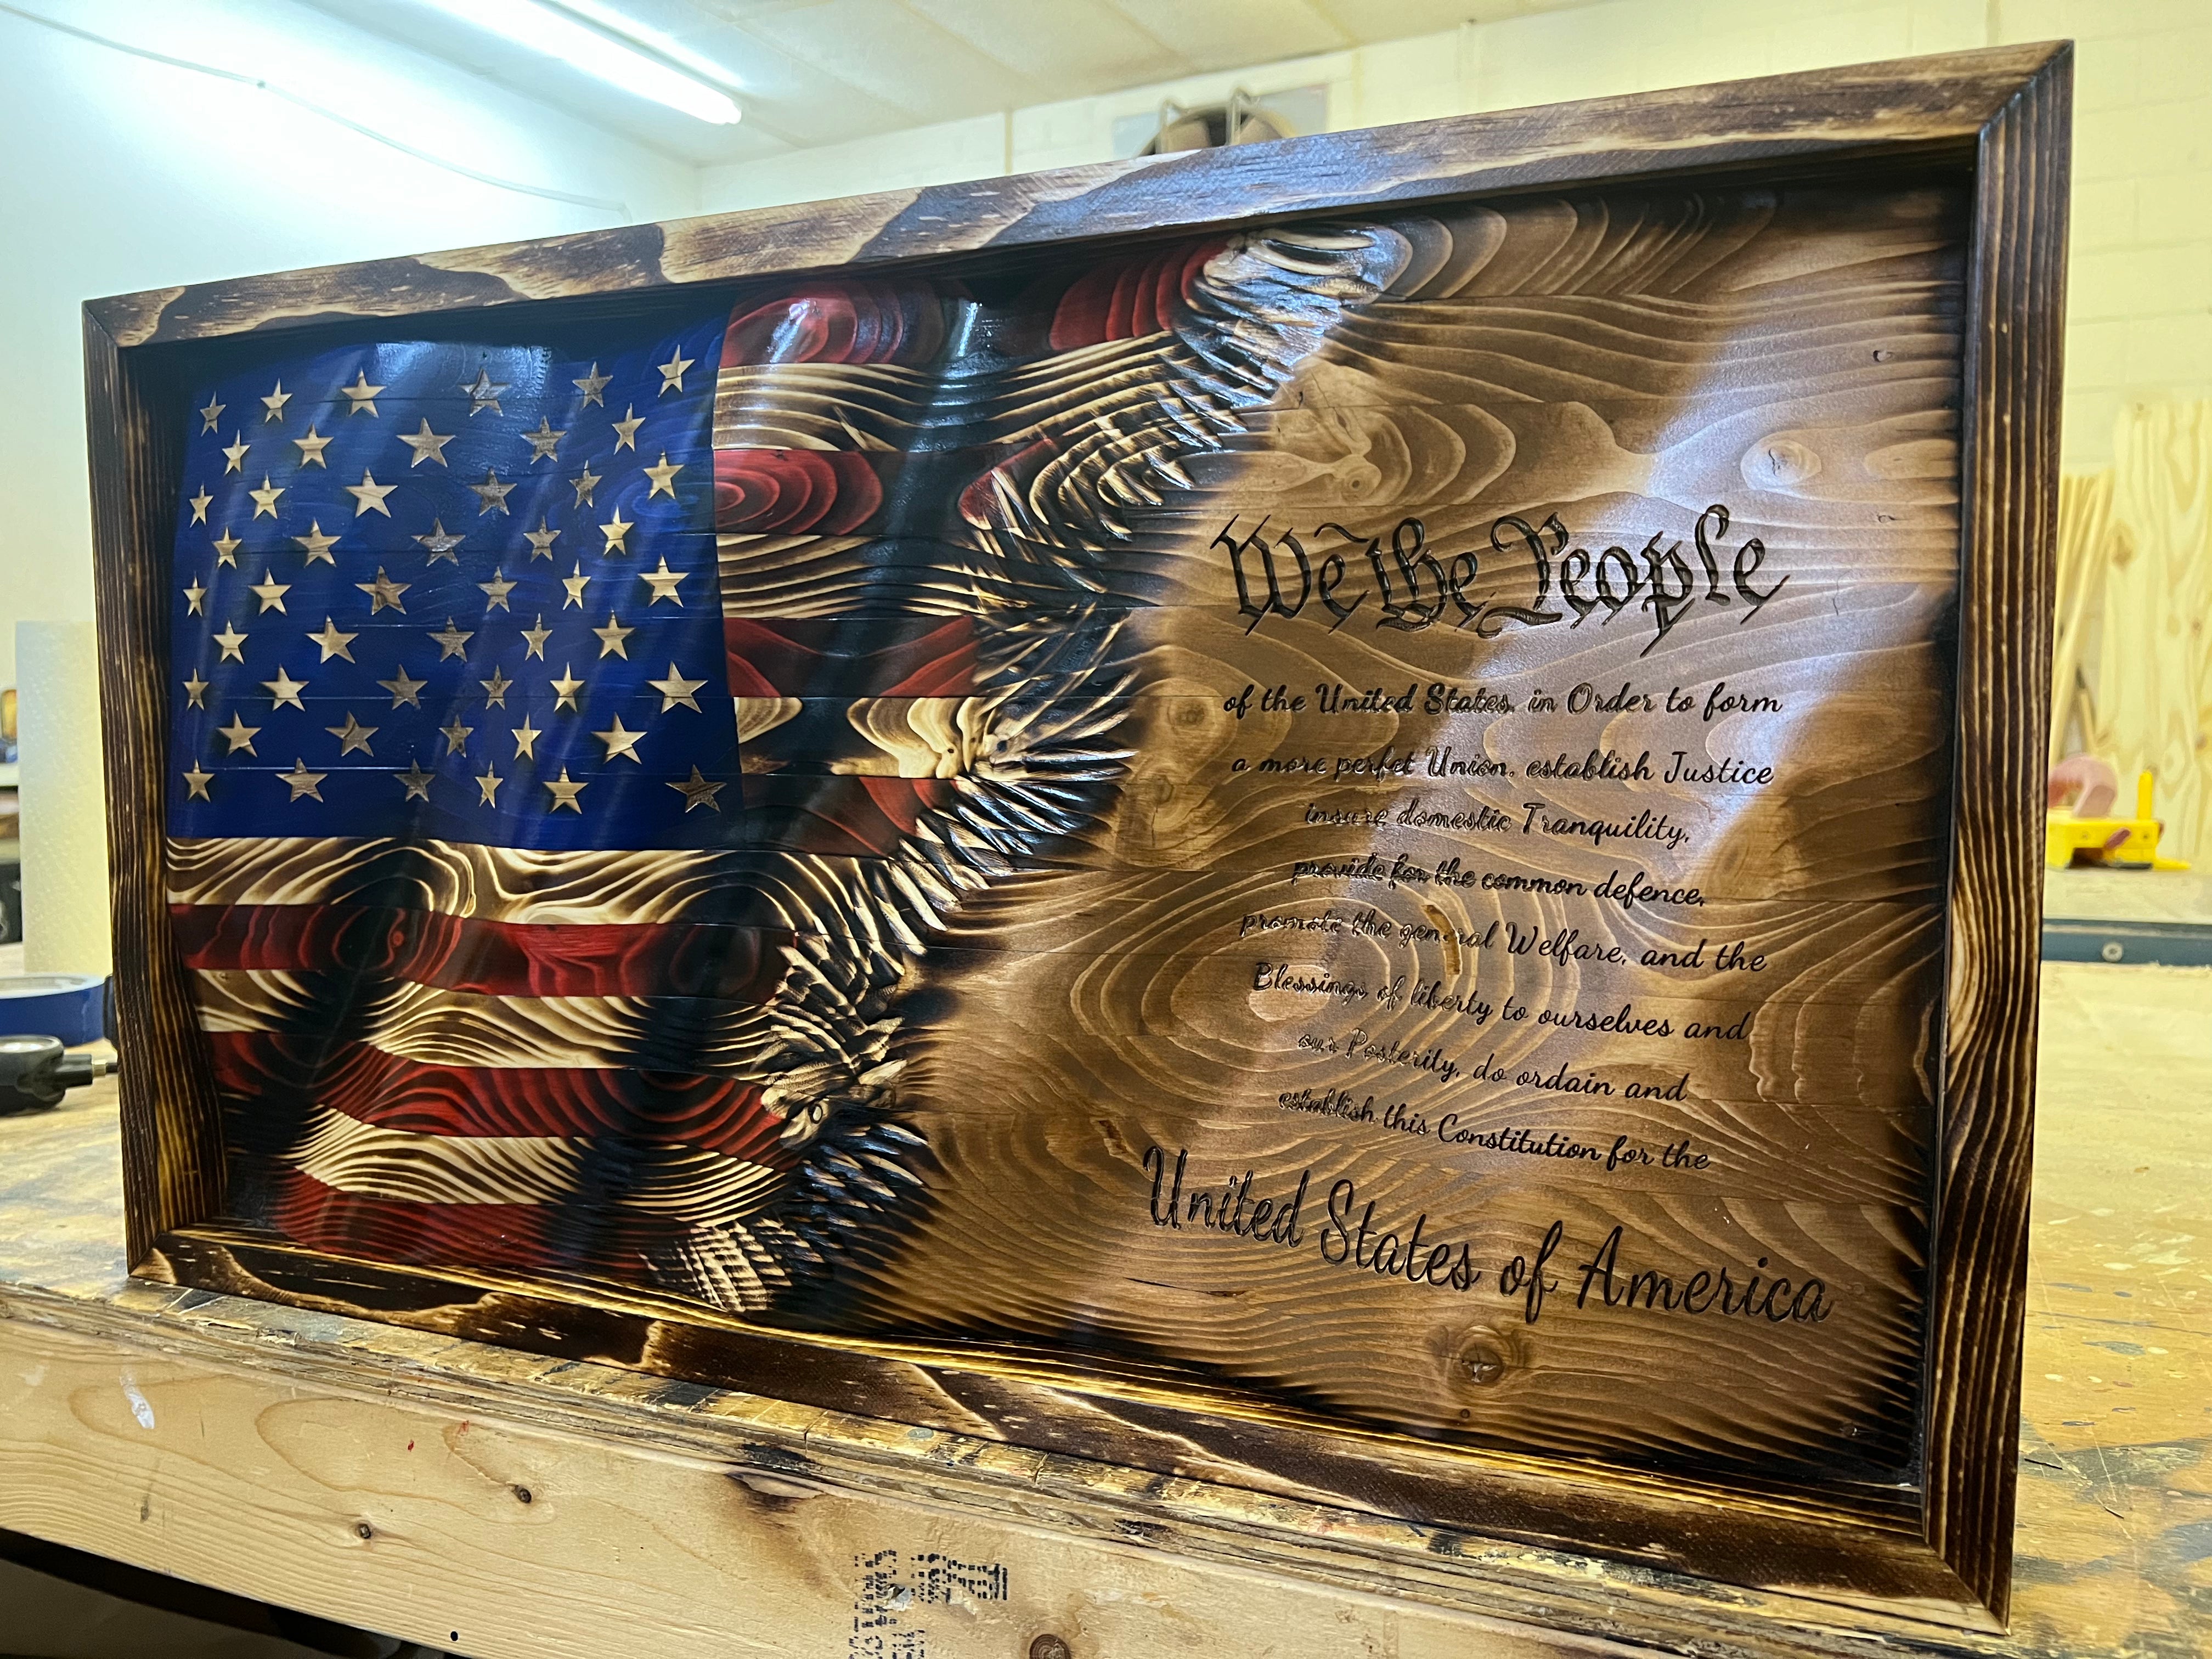 We the People
of the United States, in Order to form
a more perfet Union, establish Justice
insure domestic Tranquility,
provide for the common defence,
promote the general Welfare, and the
Blessings of liberty to ourselves and
our Posterity, do ordain and
establish this Constitution for the
United States of America